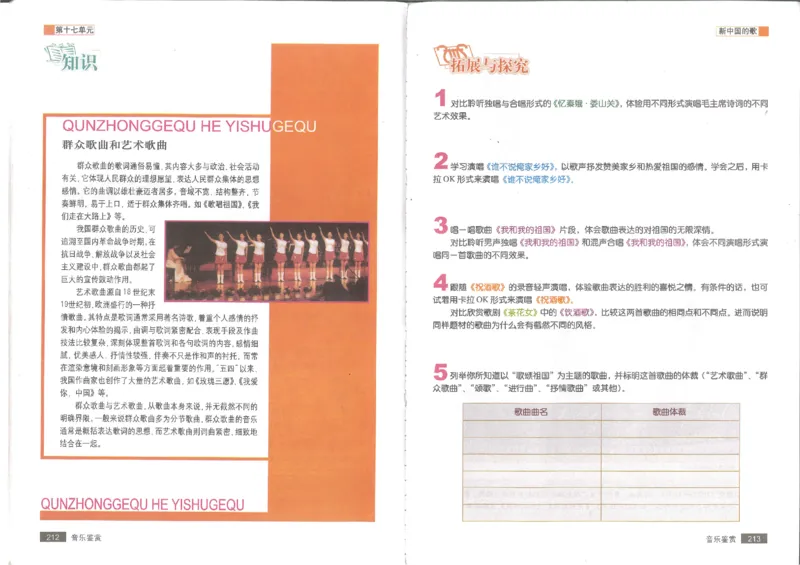 第十七单元
知识
QUNZHONGGEQU HE YISHUGEQU
群众歌曲和艺术歌曲
群众歌曲的歌词通俗易懂,其内容大多与政治、社会活动
有关,它体现人民群众的理想愿望,表达人民群众集体的思想
感情。它的曲调以雄壮豪迈者居多,音域不宽,结构整齐,节
奏鲜明,易于上口,适于群众集体齐唱。如《歌唱祖国》、《我
们走在大路上》等。
我国群众歌曲的历史,可
追溯至国内革命战争时期,在
抗日战争、解放战争以及社会
主义建设中,群众歌曲都起了
巨大的宣传鼓动作用。
艺术歌曲源自18世纪末
19世纪初,欧洲盛行的一种抒
情歌曲。其特点是歌词通常采用著名诗歌,着重个人感情的抒
发和内心体验的揭示,曲调与歌词紧密配合,表现手段及作曲
技法比较复杂,深刻体现整首歌词和各句歌词的内容,感情细
腻,优美感人,抒情性较强。伴奏不只是作和声的衬托,而常
在渲染意境和刻画形象等方面起着重要的作用。“五四”以来,
我国作曲家也创作了大量的艺术歌曲,如《玫瑰三愿》、《我爱
你,中国》等。
群众歌曲与艺术歌曲,从歌曲本身来说,并无截然不同的
明确界限。一般来说群众歌曲多为分节歌曲,群众歌曲的音乐
通常是概括表达歌词的思想,而艺术歌曲则词曲紧密、细致地
结合在一起。
QUNZHONGGEQU HE YISHUGEQU
212 音乐鉴赏
新中国的歌
拓展与探究
1 对比聆听独唱与合唱形式的《忆秦娥·娄山关》,体验用不同形式演唱毛主席诗词的不同
艺术效果。
2 学习演唱《谁不说俺家乡好》,以歌声抒发赞美家乡和热爱祖国的感情。学会之后,用卡
拉OK形式来演唱《谁不说俺家乡好》。
3 唱一唱歌曲《我和我的祖国》片段,体会歌曲表达的对祖国的无限深情。
对比聆听男声独唱《我和我的祖国》和混声合唱《我和我的祖国》,体会不同演唱形式演
唱同一首歌曲的不同效果。
4 跟随《祝酒歌》的录音轻声演唱,体验歌曲表达的胜利的喜悦之情。有条件的话,也可
试着用卡拉OK形式来演唱《祝酒歌》。
对比欣赏歌剧《茶花女》中的《饮酒歌》,比较这两首歌曲的相同点和不同点,进而说明
同样题材的歌曲为什么会有截然不同的风格。
5 列举你所知道以“歌颂祖国”为主题的歌曲,并标明这首歌曲的体裁(“艺术歌曲”、“群
众歌曲”、“颂歌”、“进行曲”、“抒情歌曲”或其他)。
歌曲曲名 歌曲体裁
音乐鉴赏 213